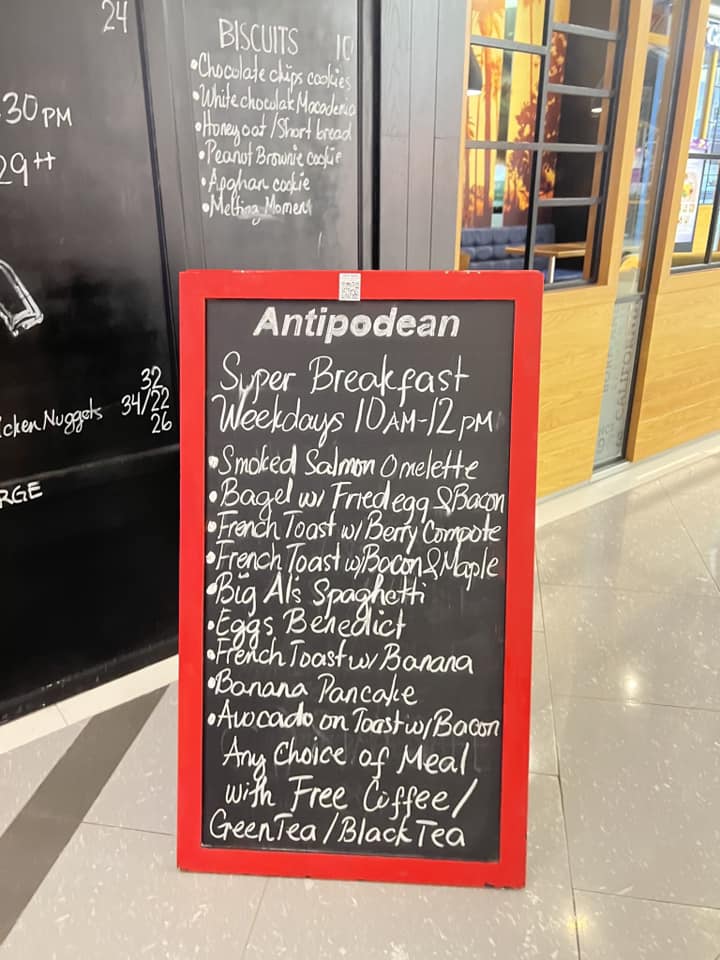 24
30 PM
29++
32
icken Nuggets 34/22
26
RGE
BISCUITS 10
•Chocolate chips cookies
•White chocolate Macadamia
•Honey oat / Short bread
•Peanut Brownie cookie
•Apghan cookie
•Melting Moment
Antipodean
Super Breakfast
Weekdays 10AM-12 PM
•Smoked Salmon Omelette
•Bagel w/ Fried egg & Bacon
•French Toast w/ Berry Compote
•French Toast w/ Bacon & Maple
•Big Al's Spaghetti
•Eggs Benedict
•French Toast w/ Banana
•Banana Pancake
•Avocado on Toast w/ Bacon
Any Choice of Meal
with Free Coffee/
Green Tea / Black Tea